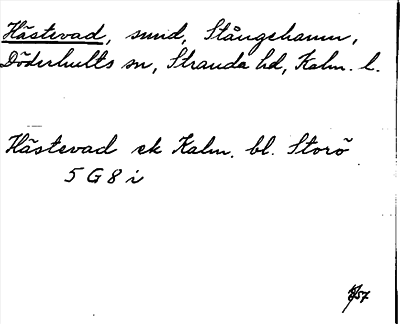 Hästevad, sund, Stångehamn,
Döderhults sn, Stranda hd, Kalm. l.
Hästevad ek Kalm. bl. Storö
5 G 8 i